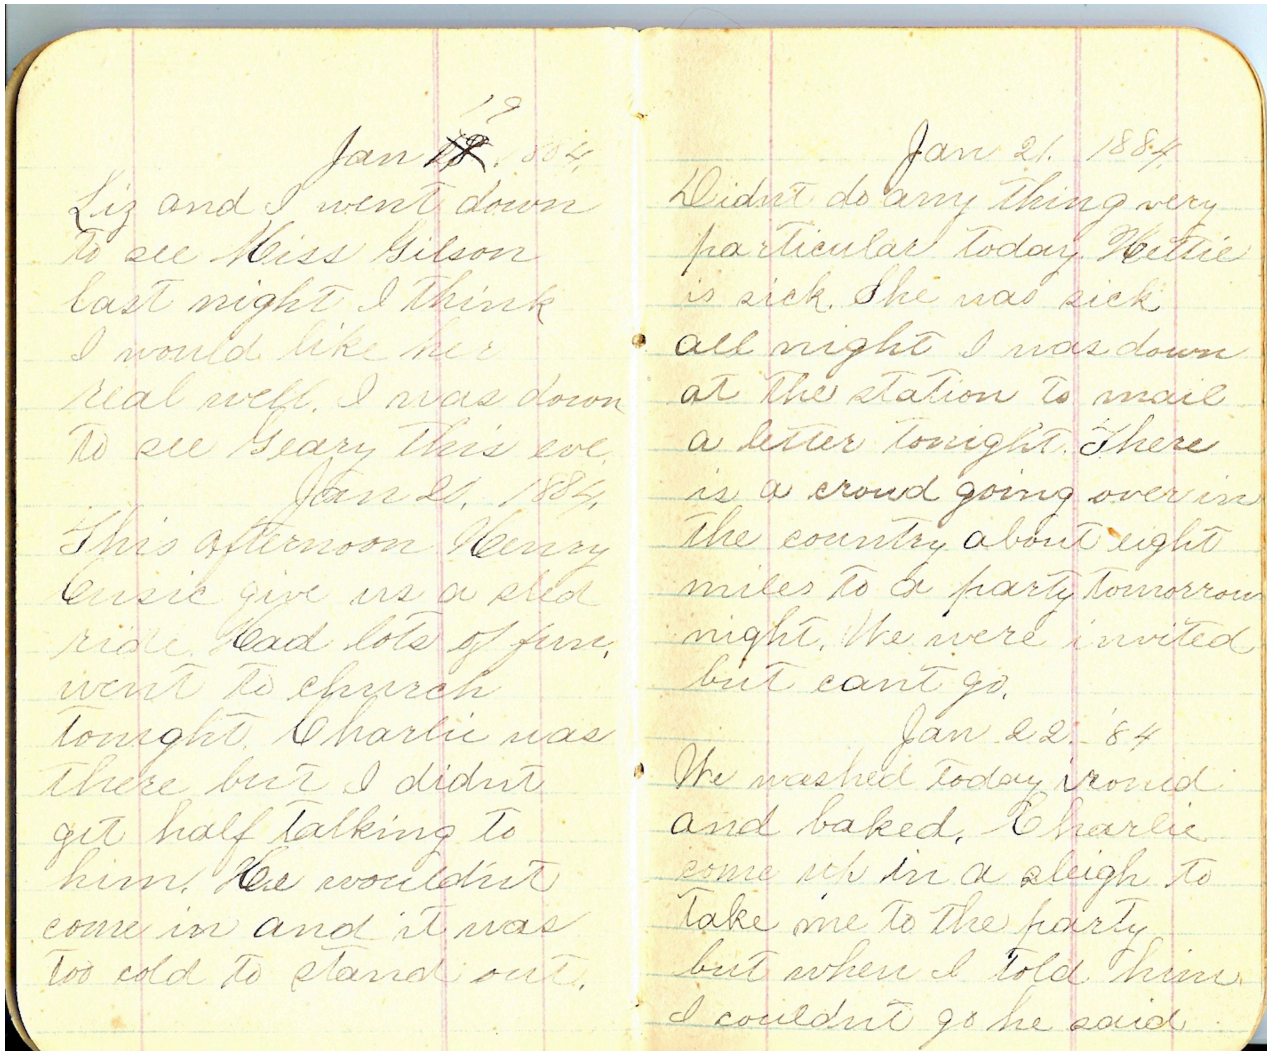 19
Jan 18. 1884.
Liz and I went down
to see Miss Gilson
last night I think
I would like her
real well. I was down
to see Geary this eve.
Jan 20. 1884.
This afternoon Henry
give us a sled
ride. Had lots of fun.
went to church
tonight. Charlie was
there but I didnt
get half talking to
him. He wouldnt
come in and it was
too cold to stand out.
Jan 21. 1884.
Didnt do any thing very
particular today. Hettie
is sick. She was sick
all night I was down
at the station to mail
a letter tonight. There
is a croud going over in
the country about eight
miles to a party tomorrow
night. We were invited
but cant go.
Jan 22. '84
We washed today ironid
and baked. Charlie
come up in a sleigh to
take me to the party
but when I told him
I couldnt go he said